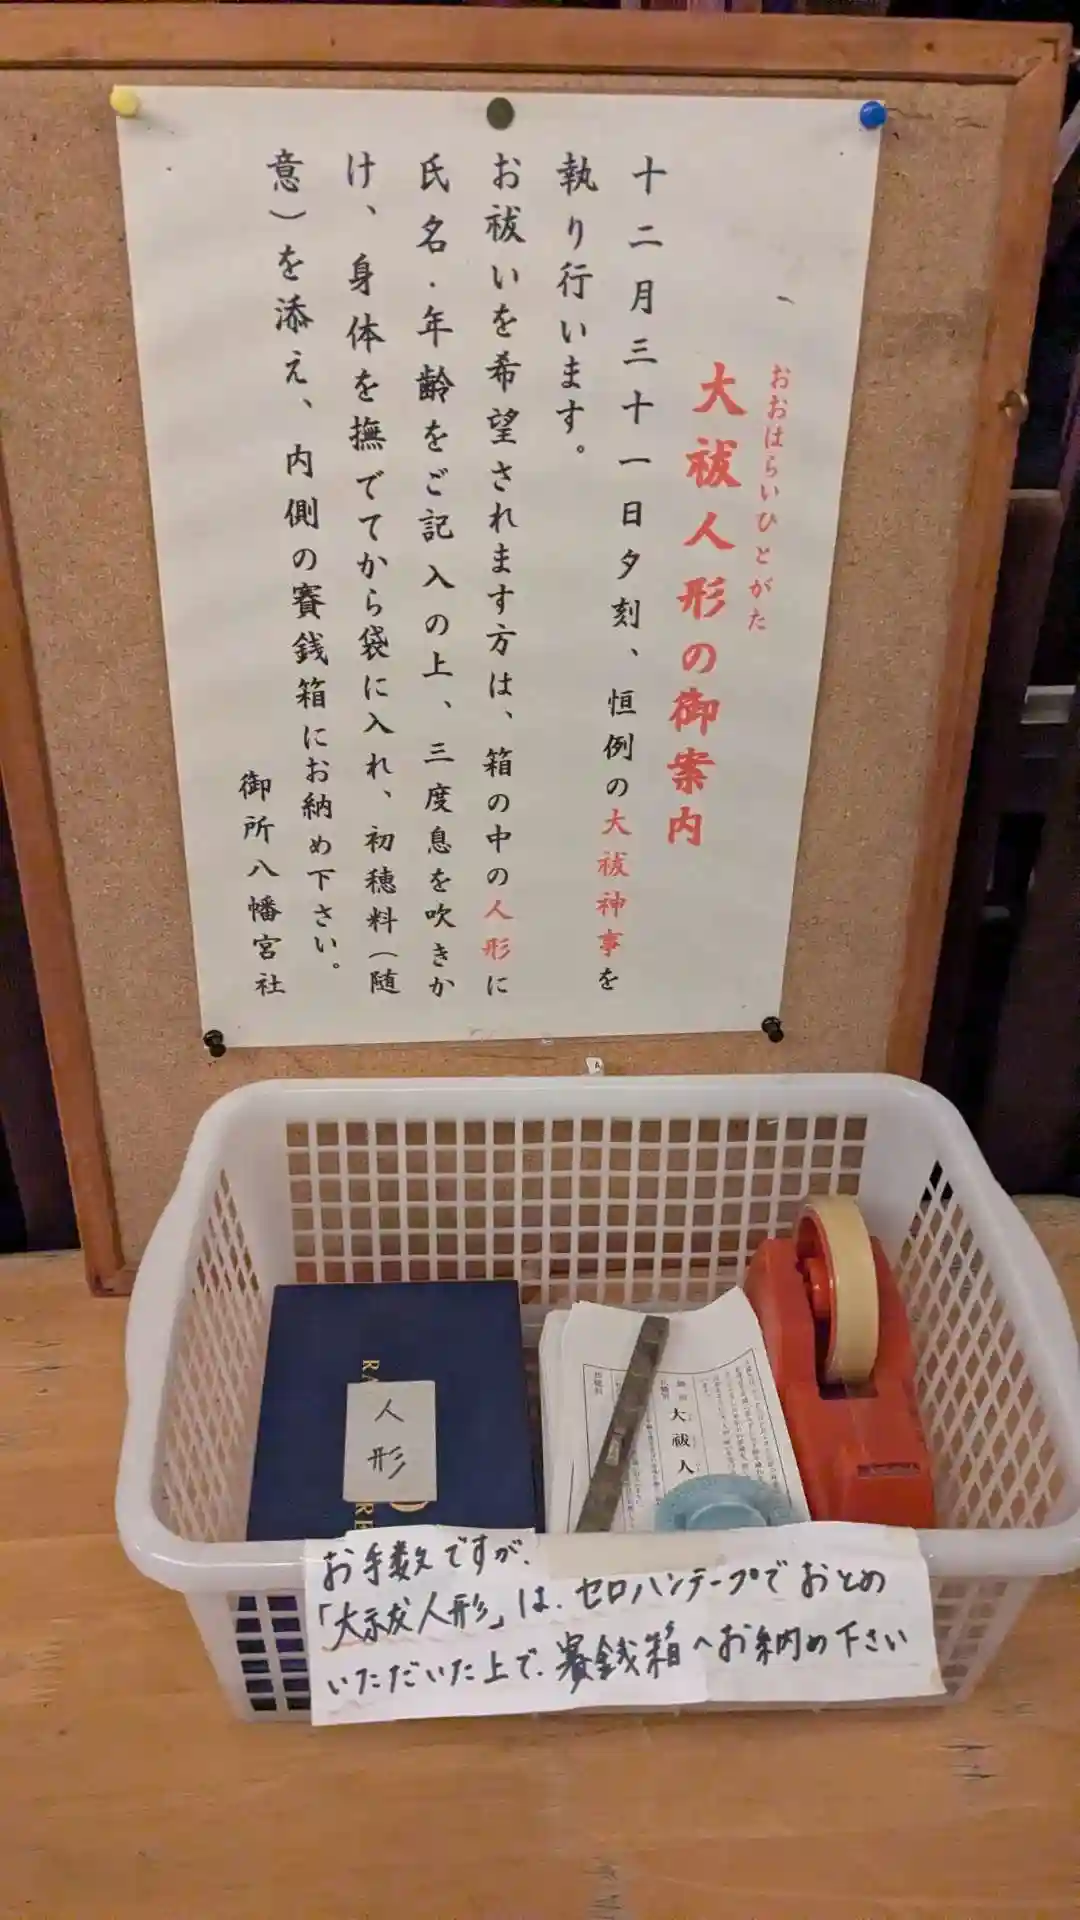 おおはらいひとがた
大祓人形の御案内
十二月三十一日夕刻、恒例の大祓神事を
執り行います。
お祓いを希望されます方は、箱の中の人形に
氏名・年齢をご記入の上、三度息を吹きか
け、身体を撫でてから袋に入れ、初穂料(随
意)を添え、内側の賽銭箱にお納め下さい。
御所八幡宮社
人形
大祓人
お手数ですが、
「大祓人形」は、セロハンテープでおとめ
いただいた上で、賽銭箱へお納め下さい